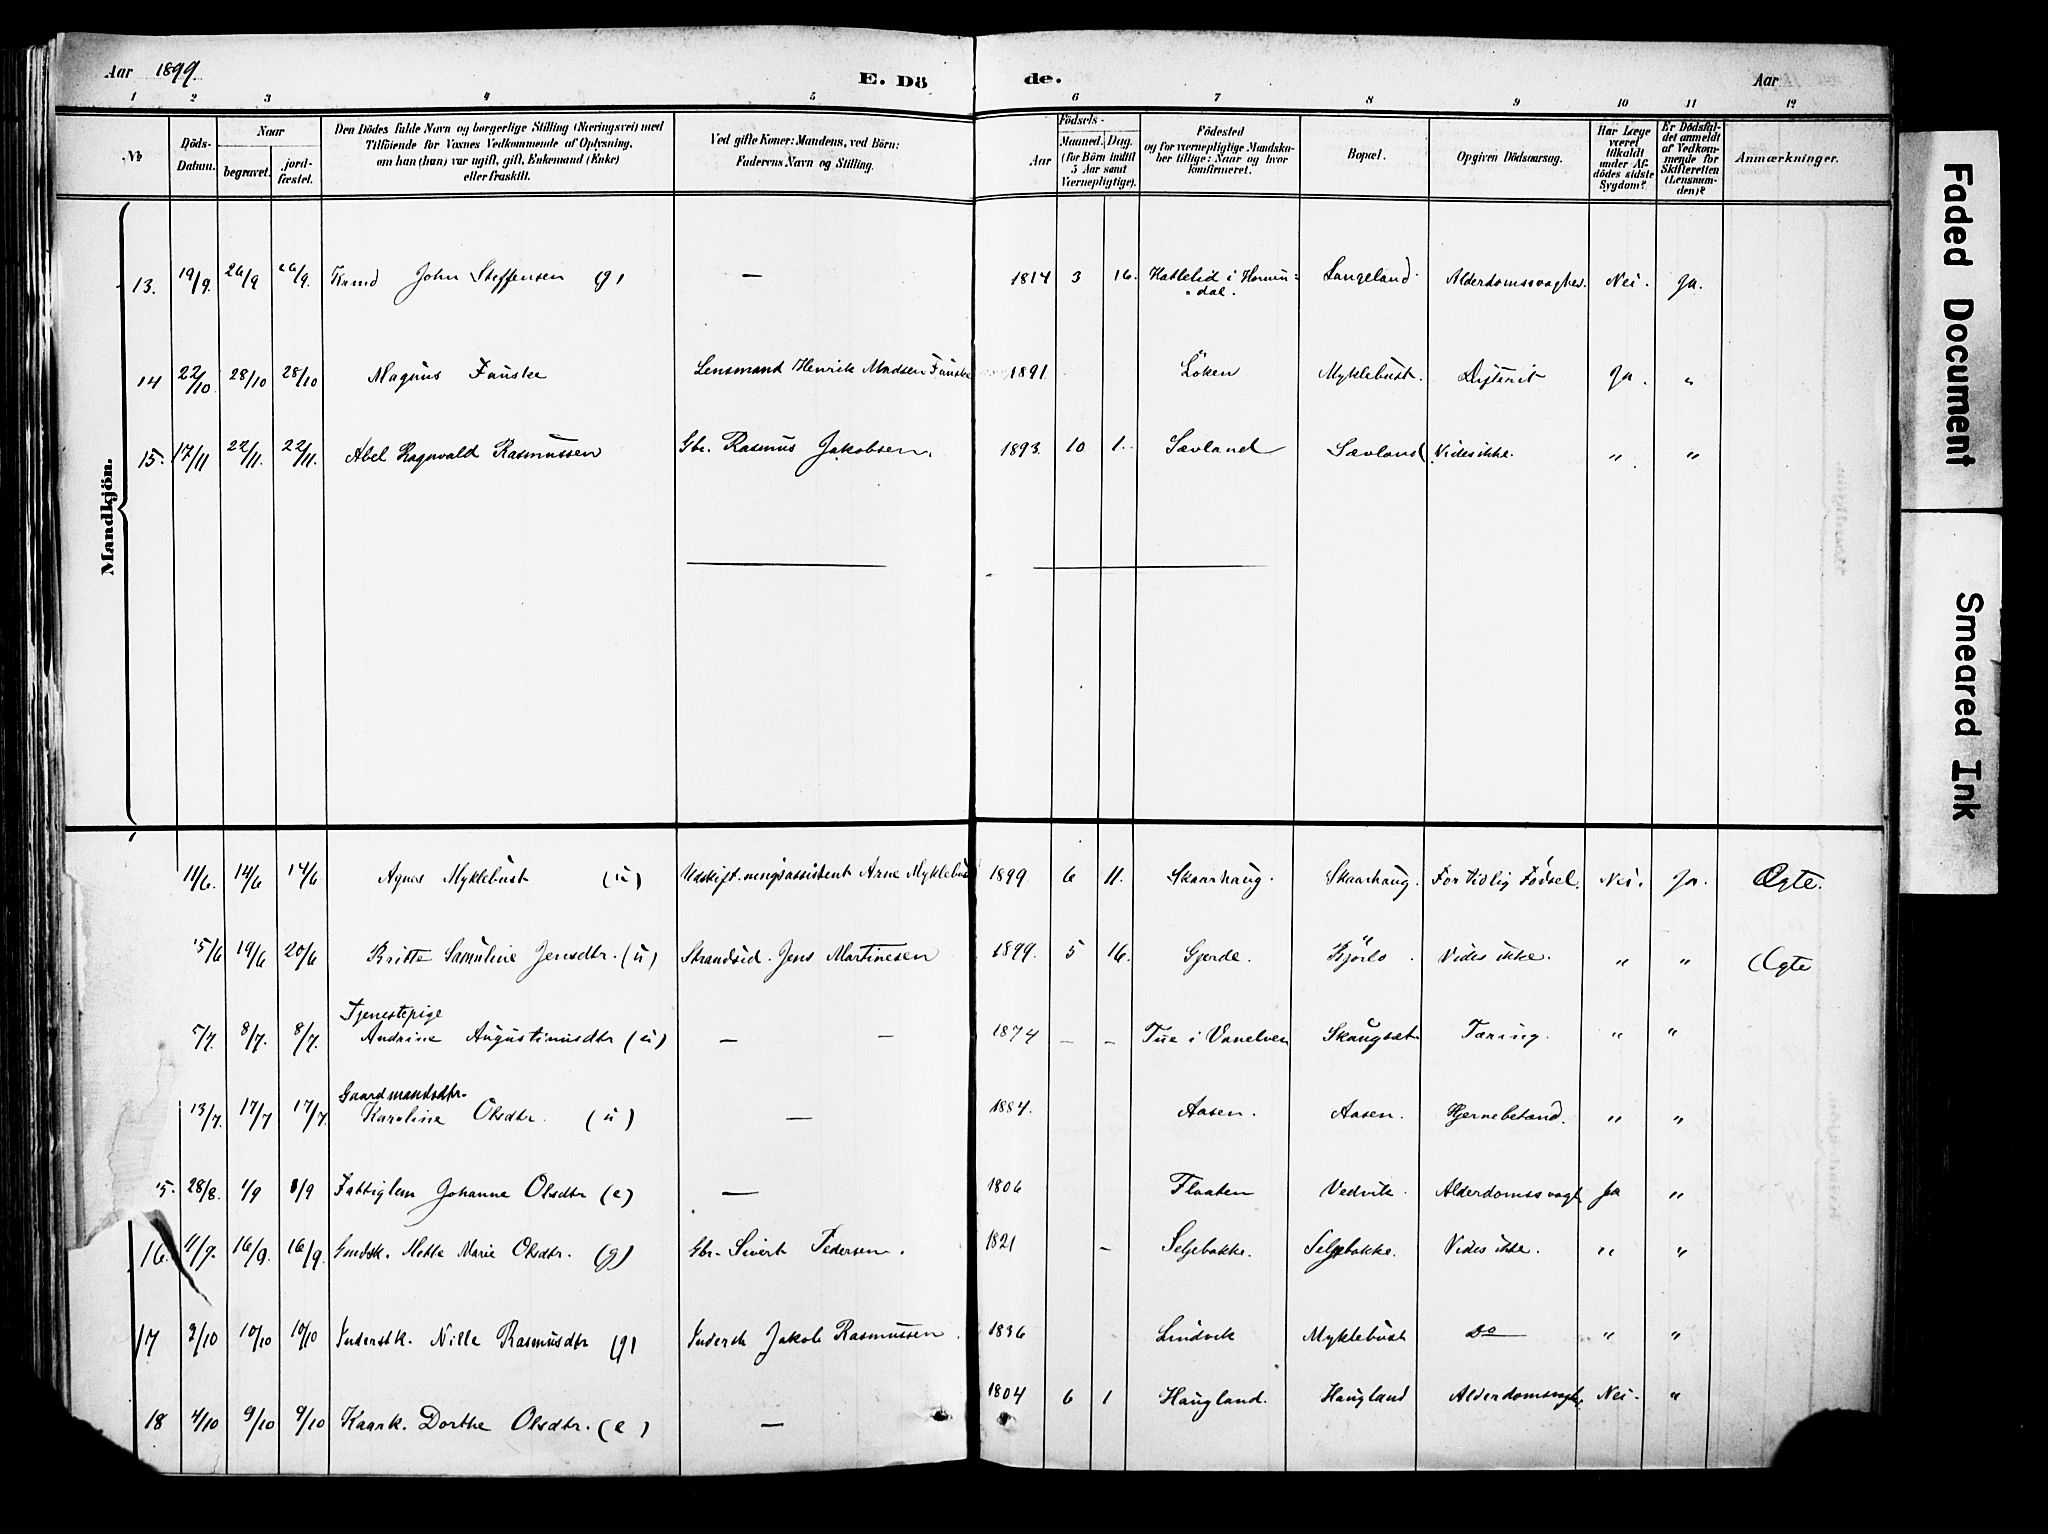 Aar 1899. E. Dö de. Aar
1 2 3 4 5 6 7 8 9 10 11 12
No
Döds-Datum.
Naar
begravet.
jord-fæstet.
Den Dödes fulde Navn og borgerlige Stilling (Næringsvei) med
Tilföiende for Voxnes Vedkommende af Oplysning,
om han (hun) var ugift, gift, Enkemand (Enke)
eller fraskilt.
Ved gifte Koner: Mandens, ved Börn:
Faderens Navn og Stilling.
Födsels-
Aar
Maaned. Dag.
(for Börn indtil
5 Aar samt
Værnepligtige).
Födested
og for værnepligtige Mandska-
ber tillige: Naar og hvor
konfirmeret.
Bopæl.
Opgiven Dödsaarsag.
Har Læge
været
tilkaldt
under Af-
dödes sidste
Sygdom?
Er Dödsfal-
det anmeldt
af Vedkom-
mende for
Skifteretten
(Lensman-
den)?
Anmærkninger.
Mandkjön.
13. 19/9. 26/9 26/9. John Steffensen (g) — 1814 3 16. i Hornin-
dal. Langeland. Alderdomssvaghed. Nei. Ja.
14 22/10 28/10 28/10 Magnus Fauske Lensmand Henrik Madsen Fauske 1891. Löken Myklebust. Difterit Ja. "
15. 17/11 22/11. 22/11. Abel Ragnvald Rasmussen Gbr. Rasmus Jakobsen. 1893. 10 1. Sævland Sævland Vides ikke. " "
11/6. 14/6 14/6 Agnes Myklebust (u) Udskiftningsassistent Arne Myklebust 1899. 6 11. Skaarhaug. Skaarhaug. For tidlig Födsel. Nei. Ja. Ægte.
15/6 19/6 20/6 Britte Samuline Jensdtr. (u) Strandsid. Jens Martinesen 1899. 5 16. Gjerde. Vides ikke. " " Ægte
Tjenestepige
5/7. 8/7. 8/7. Andrine Augustinusdtr (u) — — 1874 — — Tue i Vanelven Skaugset Tæring. " "
Gaardmandsdtr.
13/7. 17/7 17/7. Karoline Olsdtr. (u) — 1884. Aasen. Aasen. Hjernebetænd. " "
15. 28/8. 1/9 8/9 Fattiglem Johanne Olsdtr (e) — 1806 Flaaten Vedvik. Alderdomssvagh. Ja "
16. 11/9. 16/9. 16/9. Gmdsk. Mette Marie Olsdtr. (g) Gbr. Sivert Pedersen. 1821 — Seljebakke. Seljebakke. Vides ikke. " "
17 2/10 10/10 10/10 Inderstk. Nille Rasmusdtr (g) Inderst Jakob Rasmussen. 1836 Lindvik Myklebust Do " "
18 4/10 9/10 9/10 Kaark. Dorthe Olsdtr. (e) — 1804 6 1 Haugland. Haugland Alderdomssvaghed. Nei. "
Faded Document
Smeared Ink